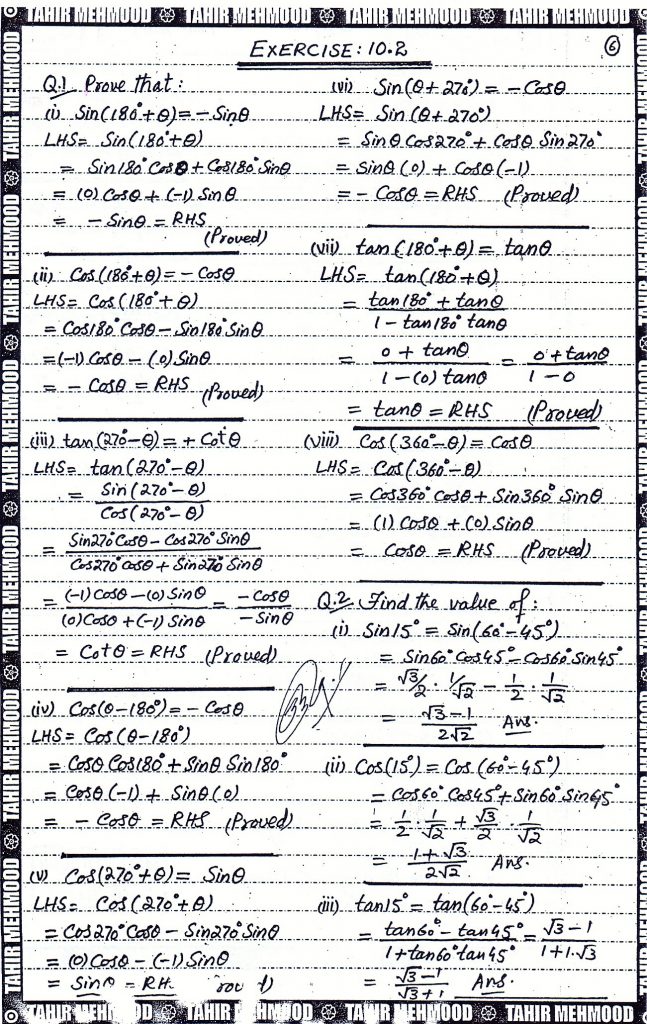 TAHIR MEHMOOD TAHIR MEHMOOD TAHIR MEHMOOD TAHIR MEHMOOD
EXERCISE: 10.2
6
Q.1 Prove that:
(i) Sin(180°+θ) = - Sinθ
LHS = Sin(180°+θ)
= Sin180° Cosθ + Cos180° Sinθ
= (0) Cosθ + (-1) Sinθ
= - Sinθ = RHS
(Proved)
(ii) Cos(180°+θ) = - Cosθ
LHS = Cos(180°+θ)
= Cos180° Cosθ - Sin180° Sinθ
= (-1) Cosθ - (0) Sinθ
= - Cosθ = RHS (Proved)
(iii) tan(270°-θ) = + Cotθ
LHS = tan(270°-θ)
= Sin(270°-θ)
Cos(270°-θ)
= Sin270° Cosθ - Cos270° Sinθ
Cos270° Cosθ + Sin270° Sinθ
= (-1) Cosθ - (0) Sinθ = - Cosθ
(0) Cosθ + (-1) Sinθ - Sinθ
= Cotθ = RHS (Proved)
(iv) Cos(θ-180°) = - Cosθ
LHS = Cos(θ-180°)
= Cosθ Cos180° + Sinθ Sin180°
= Cosθ (-1) + Sinθ (0)
= - Cosθ = RHS (Proved)
(v) Cos(270°+θ) = Sinθ
LHS = Cos(270°+θ)
= Cos270° Cosθ - Sin270° Sinθ
= (0) Cosθ - (-1) Sinθ
= Sinθ = RH
(vi) Sin(θ+270°) = - Cosθ
LHS = Sin(θ+270°)
= Sinθ Cos270° + Cosθ Sin270°
= Sinθ (0) + Cosθ (-1)
= - Cosθ = RHS (Proved)
(vii) tan(180°+θ) = tanθ
LHS = tan(180°+θ)
= tan180° + tanθ
1 - tan180° tanθ
= 0 + tanθ = 0 + tanθ
1 - (0) tanθ 1 - 0
= tanθ = RHS (Proved)
(viii) Cos(360°-θ) = Cosθ
LHS = Cos(360°-θ)
= Cos360° Cosθ + Sin360° Sinθ
= (1) Cosθ + (0) Sinθ
= Cosθ = RHS (Proved)
Q.2 Find the value of:
(i) Sin15° = Sin(60°-45°)
= Sin60° Cos45° - Cos60° Sin45°
= √3/2 . 1/√2 - 1/2 . 1/√2
= √3-1 Ans.
2√2
(ii) Cos(15°) = Cos(60°-45°)
= Cos60° Cos45° + Sin60° Sin45°
= 1/2 . 1/√2 + √3/2 . 1/√2
= 1+√3 Ans.
2√2
(iii) tan15° = tan(60°-45°)
= tan60° - tan45° = √3-1
1+tan60° tan45° 1+1.√3
= √3-1 Ans.
√3+1
TAHIR MEHMOOD TAHIR MEHMOOD TAHIR MEHMOOD TAHIR MEHMOOD